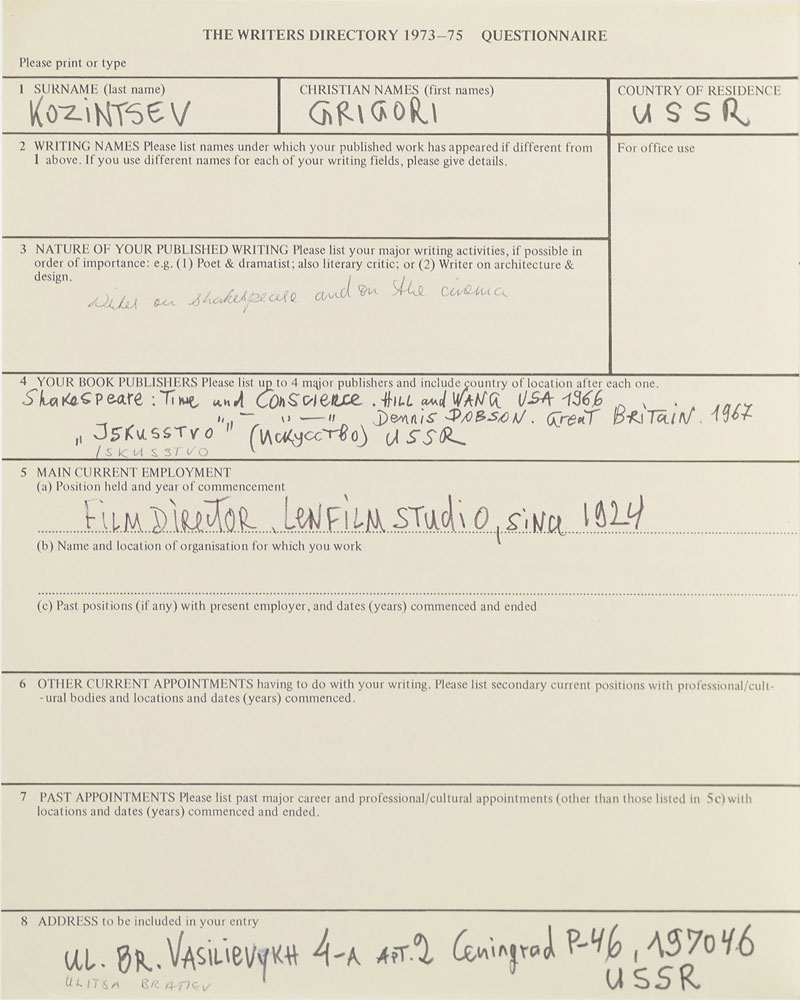 THE WRITERS DIRECTORY 1973–75 QUESTIONNAIRE
Please print or type
1 SURNAME (last name)
KOZINTSEV
CHRISTIAN NAMES (first names)
GRIGORI
COUNTRY OF RESIDENCE
USSR
2 WRITING NAMES Please list names under which your published work has appeared if different from
1 above. If you use different names for each of your writing fields, please give details.
For office use
3 NATURE OF YOUR PUBLISHED WRITING Please list your major writing activities, if possible in
order of importance: e.g. (1) Poet & dramatist; also literary critic; or (2) Writer on architecture &
design.
Writes on Shakespeare and on the cinema
4 YOUR BOOK PUBLISHERS Please list up to 4 major publishers and include country of location after each one.
Shakespeare: Time and Conscience. HILL and WANG USA 1966
" — " — " Dennis DOBSON. Great BRITAIN. 1967
„ISKUSSTVO" (Искусство) USSR
ISKUSSTVO
5 MAIN CURRENT EMPLOYMENT
(a) Position held and year of commencement
FILM DIRECTOR, LENFILM STUDIO, since 1924
(b) Name and location of organisation for which you work
(c) Past positions (if any) with present employer, and dates (years) commenced and ended
6 OTHER CURRENT APPOINTMENTS having to do with your writing. Please list secondary current positions with professional/cult-
-ural bodies and locations and dates (years) commenced.
7 PAST APPOINTMENTS Please list past major career and professional/cultural appointments (other than those listed in 5c) with
locations and dates (years) commenced and ended.
8 ADDRESS to be included in your entry
UL. BR. VASILIEVYKH 4-A APT. 2 Leningrad P-46, 197046
ULITSA BRATIEV
USSR